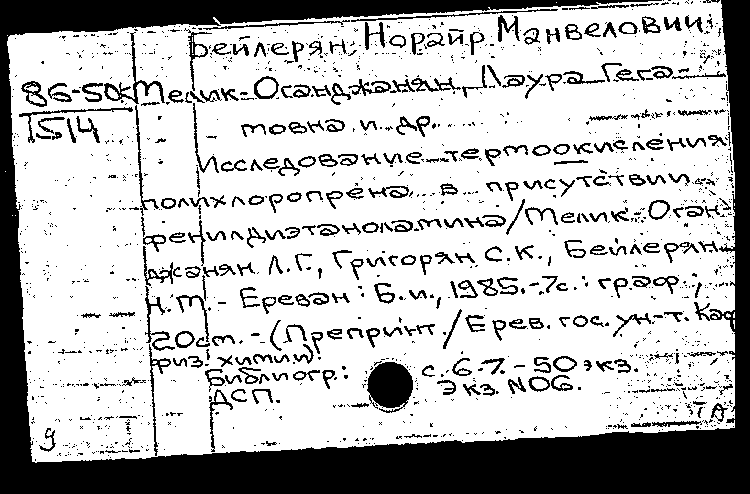 Бейлерян Норайр Манвелович
86-50к Мелик-Оганджанян, Лаура Гега-
1514 товна и др.
Исследование термоокисления
полихлоропрена в присутствии
фенилдиэтаноламина/Мелик-Оган-
джанян Л.Г., Григорян С.К., Бейлерян
Н.М. - Ереван: Б.и., 1985.-7с.: граф.;
20см. - (Препринт./Ерев. гос. ун-т. Каф
физ. химии).
Библиогр: с. 6-7. - 50 экз.
ДСП. Экз. N06.
9 ТА